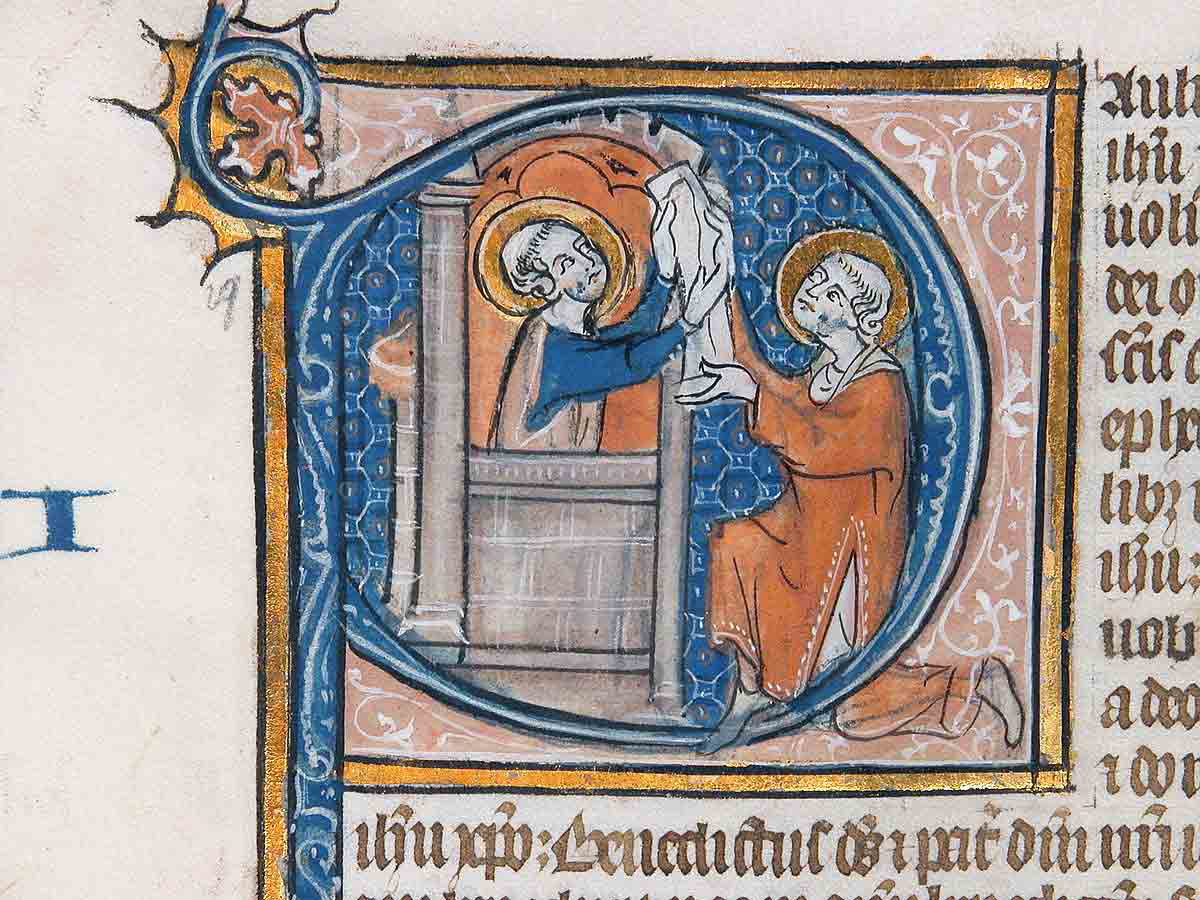 I
P
Aul
ihu̅
uolu
dei o
sc̅is
ephe
libꝫ
ihu̅:
uob
a deo
⁊ do
ihu̅ xp̅o: Benedictus ds̅ ⁊ pat̅ dn̅i nr̅i